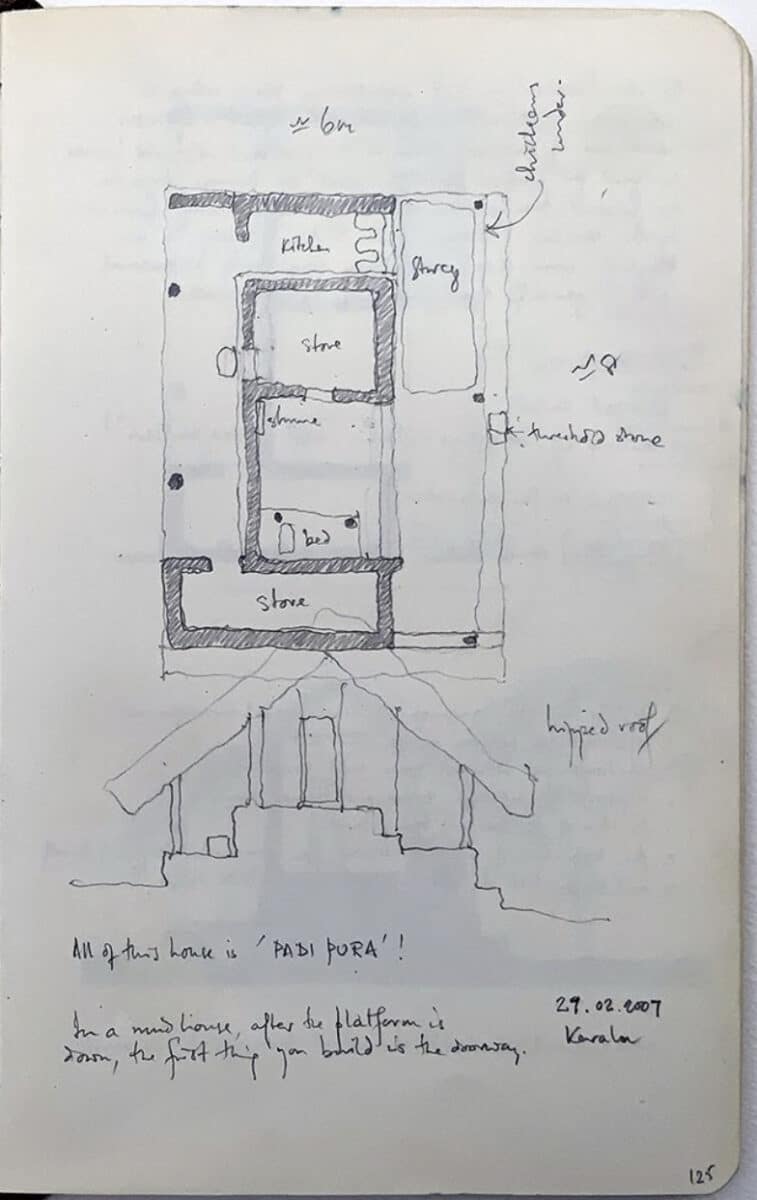 ≃ 6m
chickens
under.
kitchen
store
≃ 8
shrine
threshold stone
bed
store
hipped roof
All of this house is 'PADI PURA'!
In a mud house, after the platform is
down, the first thing you build is the doorway.
Kerala
125